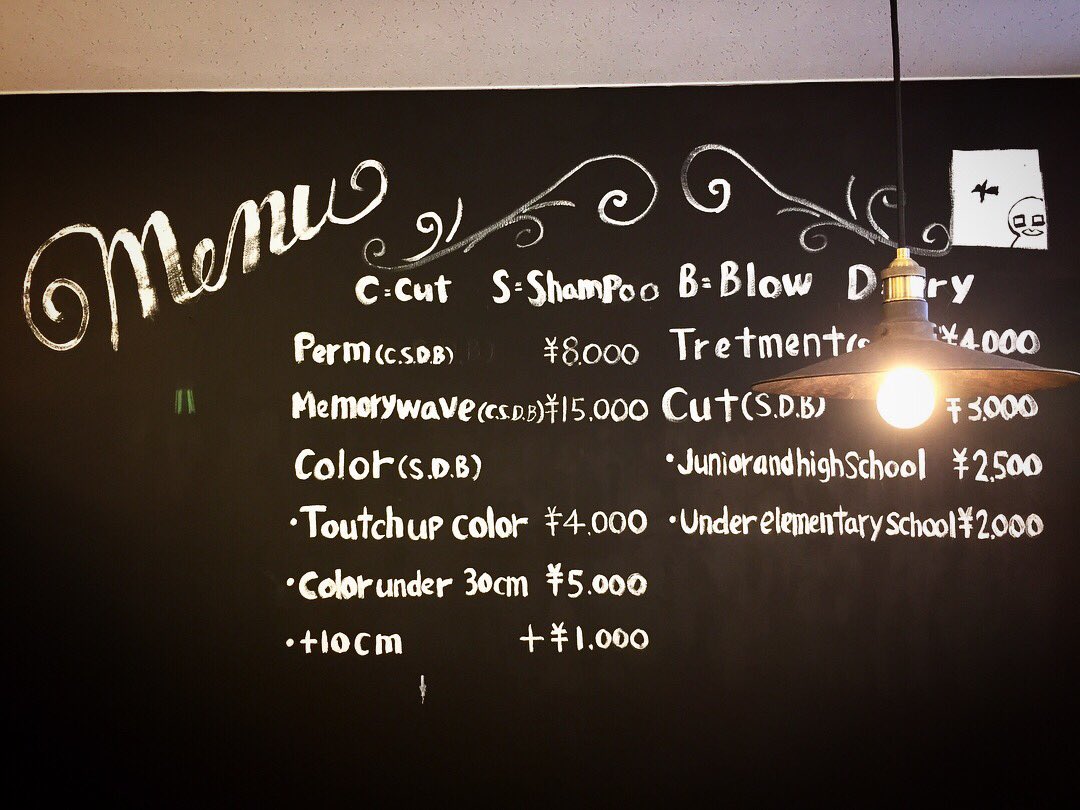 Menu
C=Cut S=Shampoo B=Blow
Perm (C.S.D.B) ¥8.000
Memorywave (C.S.D.B) ¥15.000
Color (S.D.B)
・Toutchup color ¥4.000
・Color under 30cm ¥5.000
・+10cm +¥1.000
Tretment ¥4.000
Cut (S.D.B) ¥3.000
・Junior and high School ¥2,500
・Under elementary school ¥2.000